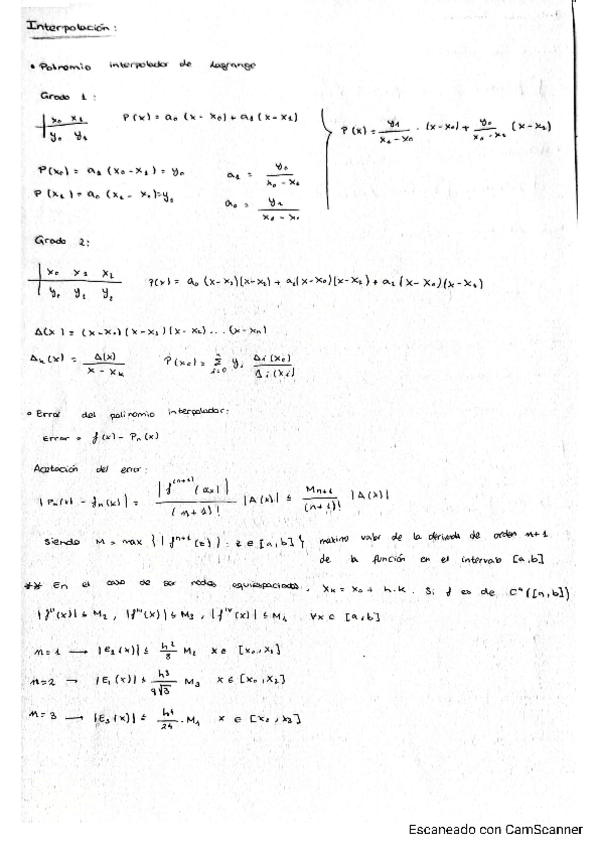 Interpolación:
• Polinomio interpolador de Lagrange
Grado 1:
x₀ x₁
y₀ y₁
P(x) = a₀ (x - x₀) + a₁ (x - x₁)
P(x) = y₁/(x₁ - x₀) · (x - x₀) + y₀/(x₀ - x₁) (x - x₁)
P(x₀) = a₁ (x₀ - x₁) = y₀
a₁ = y₀/(x₀ - x₁)
P(x₁) = a₀ (x₁ - x₀) = y₁
a₀ = y₁/(x₁ - x₀)
Grado 2:
x₀ x₁ x₂
y₀ y₁ y₂
P(x) = a₀ (x - x₁)(x - x₂) + a₁(x - x₀)(x - x₂) + a₂ (x - x₀)(x - x₁)
Δ(x) = (x - x₀)(x - x₁)(x - x₂)...(x - xn)
Δₖ(x) = Δ(x)/(x - xₖ)
• Error del polinomio interpolador:
Error = f(x) - Pn(x)
Acotación del error:
Siendo M = max {|fⁿ⁺¹(z)| : z ∈ [a,b]} máximo valor de la derivada de orden n+1
de la función en el intervalo [a,b]
** En el caso de ser nodos equiespaciados, xₖ = x₀ + h·k. Si f es de C⁴([a,b])
|f''(x)| ≤ M₂, |f'''(x)| ≤ M₃, |fᴵⱽ(x)| ≤ M₄ ∀x ∈ [a,b]
n = 1 → |E₁(x)| ≤ h²/8 M₂ x ∈ [x₀, x₁]
n = 2 → |E₁(x)| ≤ h³/9√3 M₃ x ∈ [x₀, x₂]
n = 3 → |E₃(x)| ≤ h⁴/24 · M₄ x ∈ [x₂, x₃]
Escaneado con CamScanner